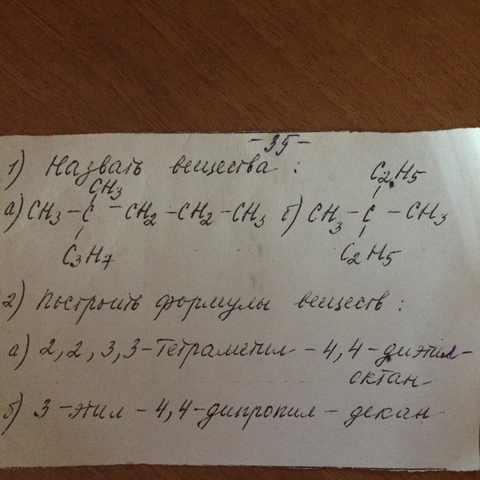 -35-
1) Назвать вещества:
CH3 C2H5
а) CH3-C-CH2-CH2-CH3 б) CH3-C-CH3
C3H7 C2H5
2) Построить формулы веществ:
а) 2,2,3,3-тетраметил-4,4-диэтил-
октан
б) 3-этил-4,4-дипропил-декан